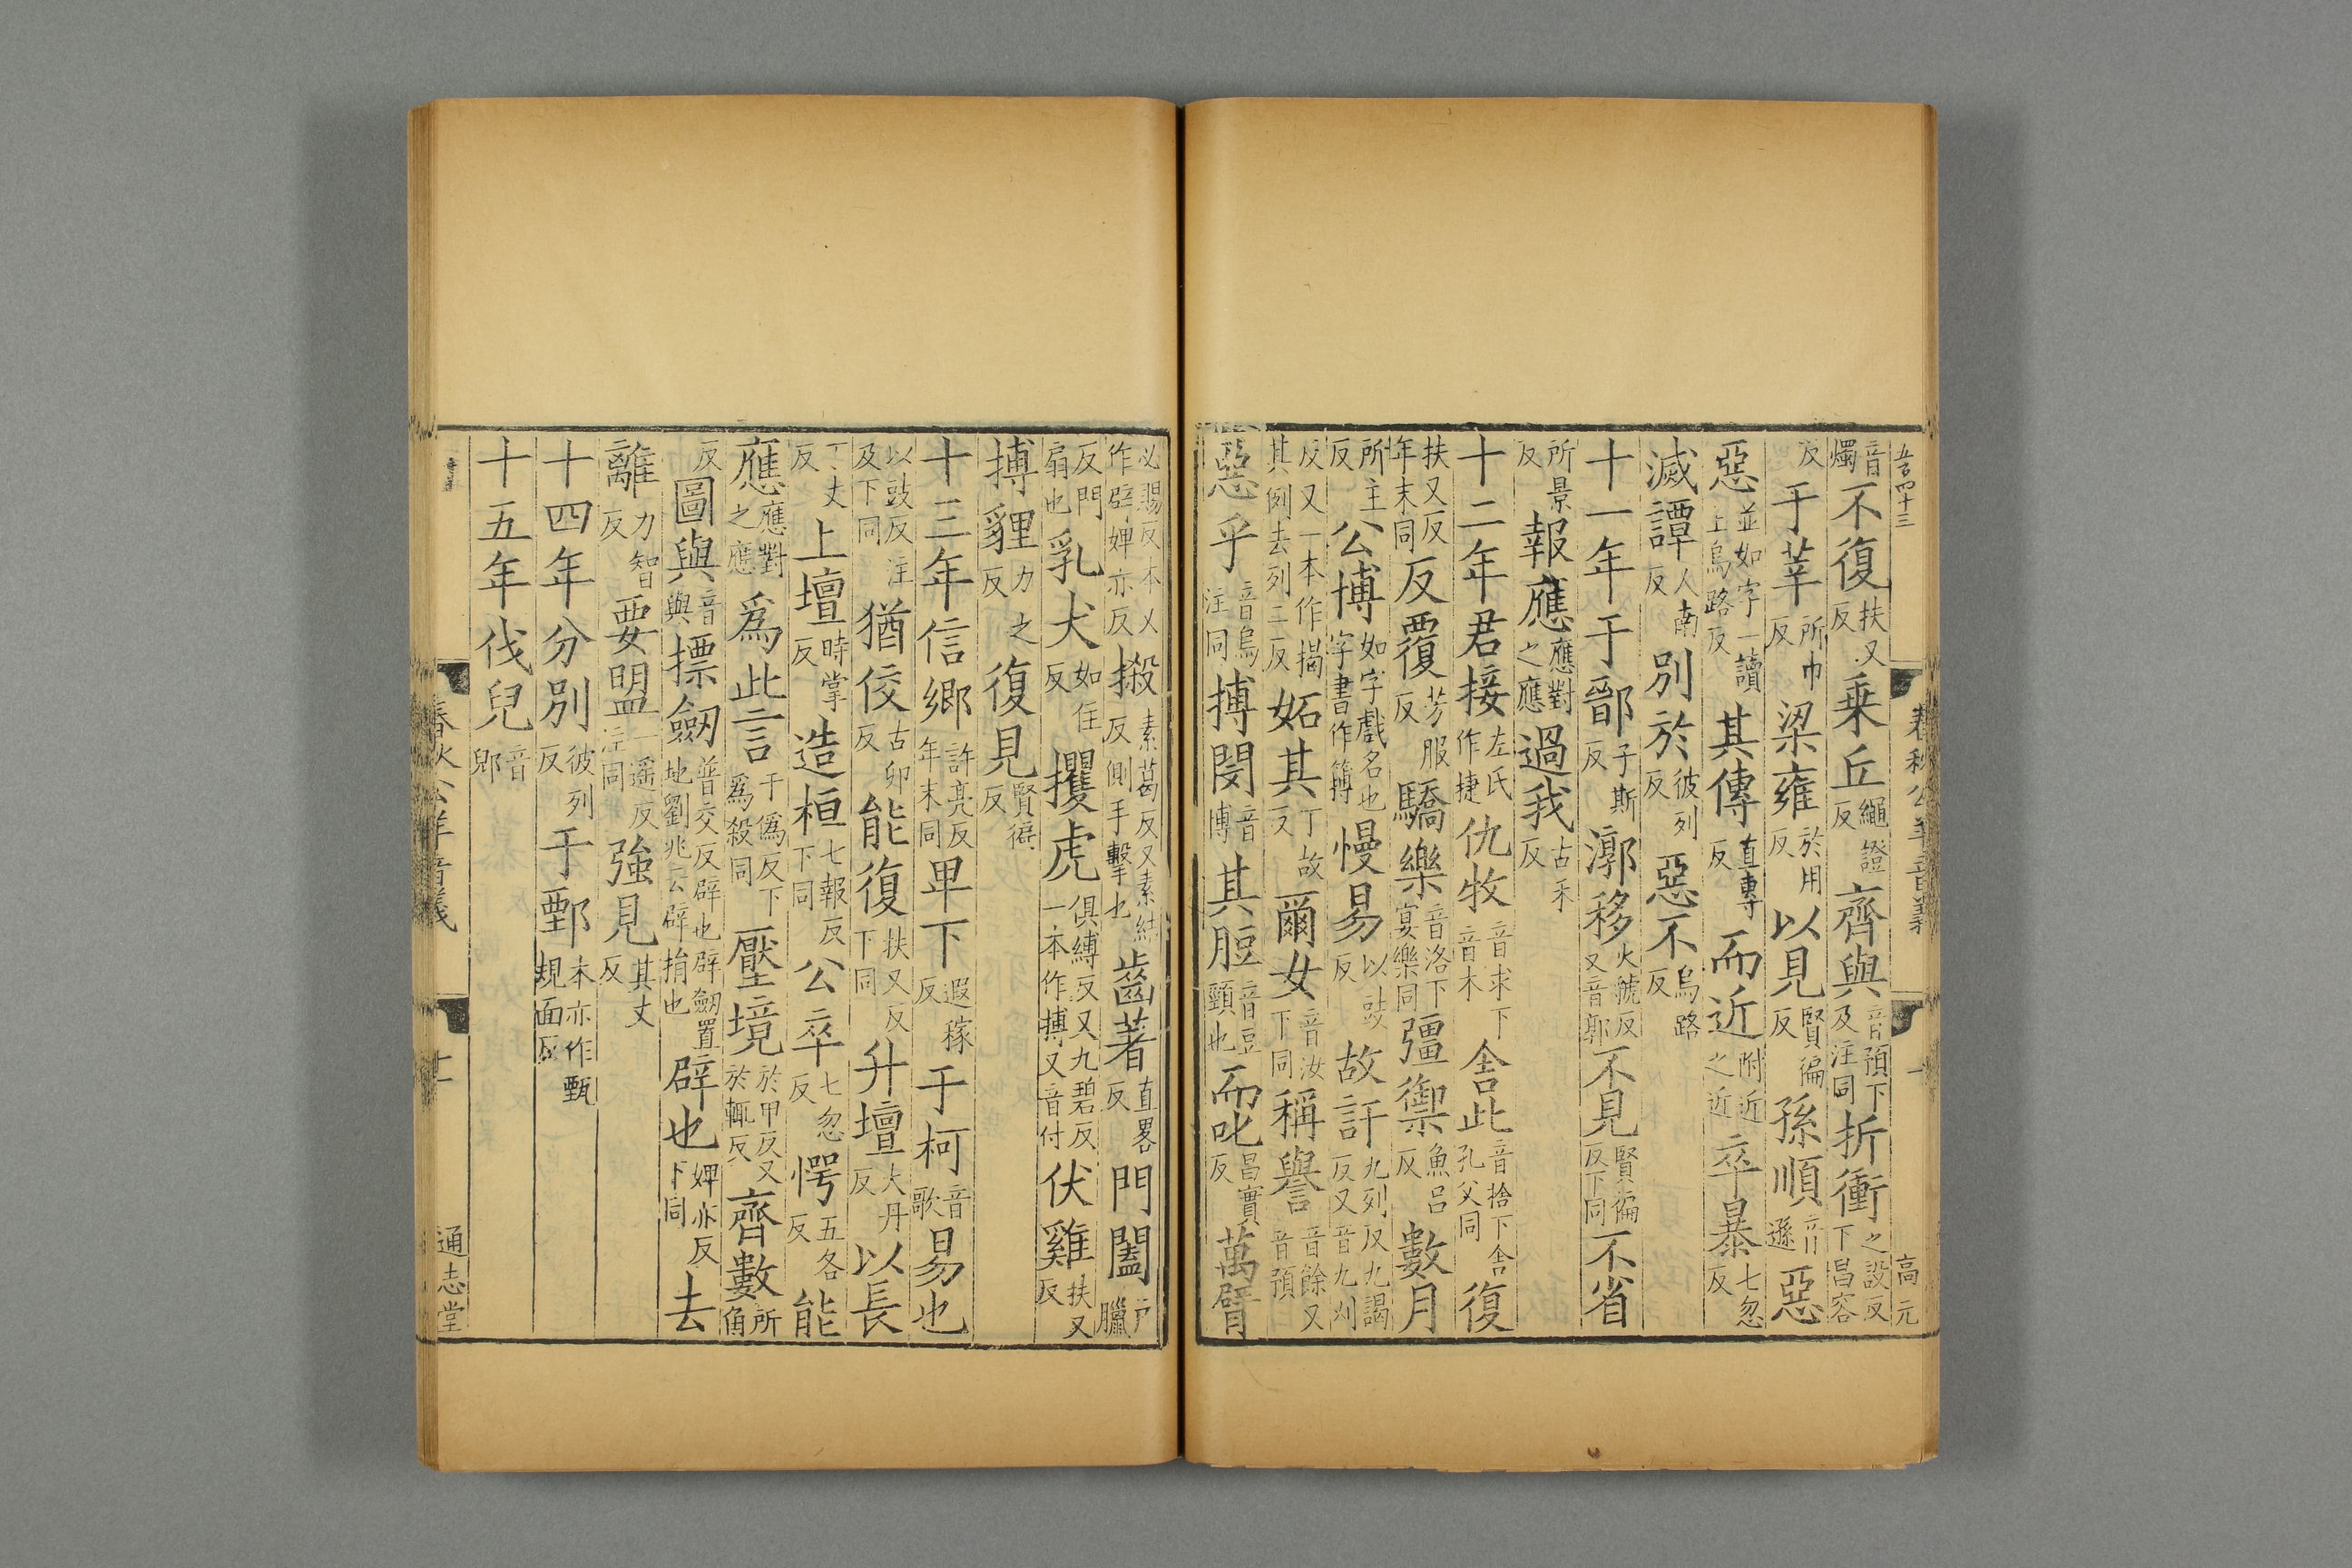 音燭不復扶又反乗丘繩證反齊與音預下及注同折衝之設反下昌容
反于莘所巾反梁雍於用反以見賢徧反孫順音遜惡
惡並如字一讀上烏路反其傳直專反而近附近之近卒暴七忽反
滅譚人南反別於彼列反惡不烏路反
十一年于鄑子斯反漷移火虢反又音郭不見賢徧反下同不省
所景反報應應對之應過我古禾反
十二年君接左氏作捷仇牧音求下音木舍此音捨下舍孔父同復
扶又反年末同反覆芳服反驕樂音洛下宴樂同彊禦魚呂反數月
所主反公博如字戲名也字書作簙慢易以豉反故訐九列反九謁反又音九刈
反又一本作揭其例去列二反妬其丁故反爾女音汝下同稱譽音餘又音預
惡乎音烏注同搏閔音博其脰音豆頸也而叱昌實反萬臂
必賜反本乂作辟婢亦反摋素葛反又素結反側手擊也齒著直畧反門闔戶臘
反門扇也乳犬如住反攫虎俱縛反又九碧反一本作搏又音付伏雞扶又反
搏貍力之反復見賢徧反
十三年信鄉許亮反年末同卑下遐稼反于柯音歌易也
以豉反注及下同猶佼古卯反能復扶又反下同升壇大丹反以長
丁丈反上壇時掌反造桓七報反下同公卒七忽反愕五各反能
應應對之應爲此言于僞反下爲殺同壓境於甲反又於輒反齊數所角
反圖與音與摽劒普交反辟也辟劒置地劉兆云辟捐也辟也婢亦反下同去
離力智反要盟一遥反注同強見其丈反
十四年分別彼列反于鄄本亦作甄規面反
十五年伐兒音郳
春秋公羊音義
通志堂